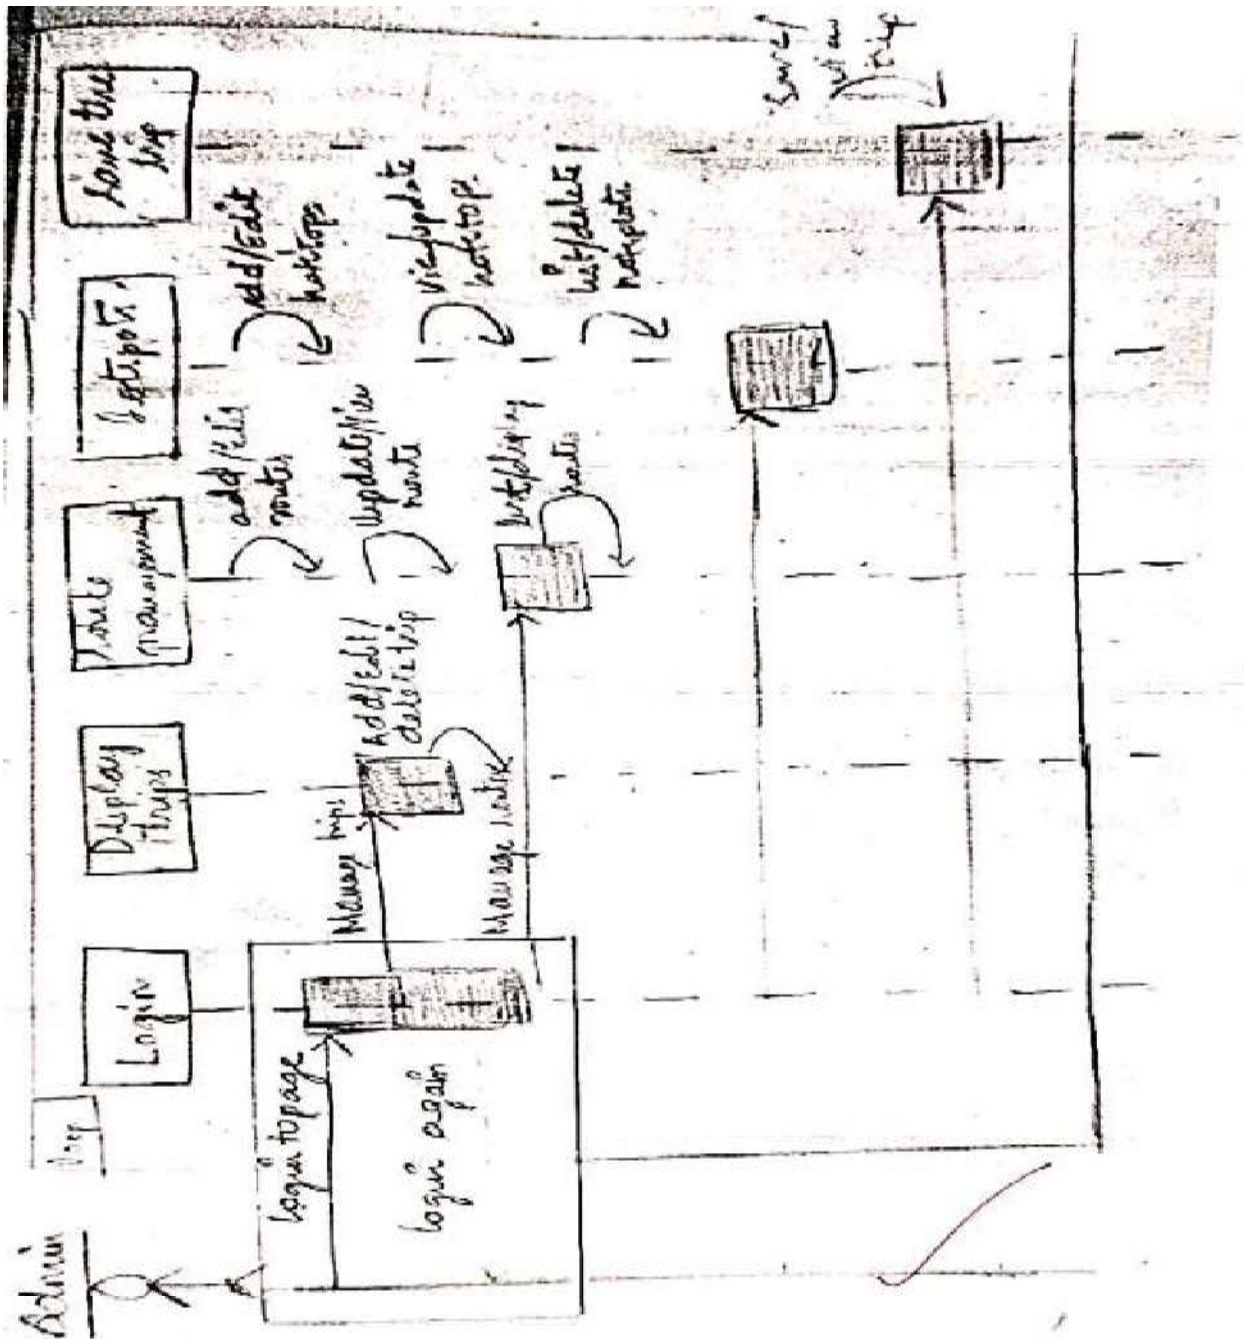 Admin
Login
Display
trips
Route
management
Save the
trip
Login to page
Login again
Manage trips
Add/Edit/
delete trip
Manage routes
add/Edit
routes
update/view
route
list/display
routes
add/Edit
hotstops
view/update
hotstop
list/delete
Save/
view
trip